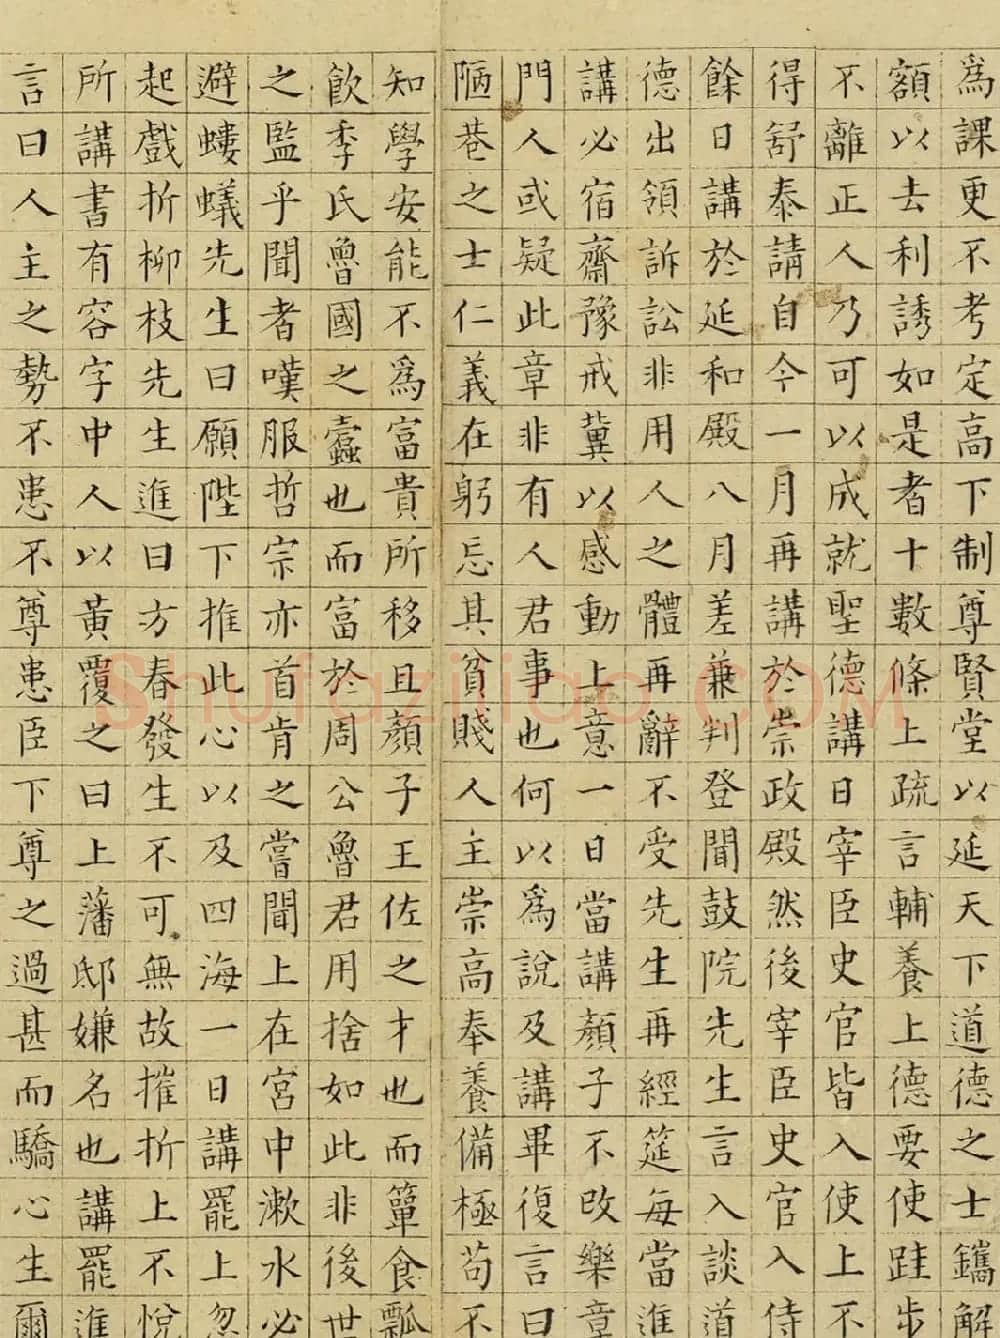 為課更不考定高下制尊賢堂以延天下道德之士鐫解
額以去利誘如是者十數條上疏言輔養上德要使跬步
不離正人乃可以成就聖德講日宰臣史官皆入使上不
得舒泰請自今一月再講於崇政殿然後宰臣史官入侍
餘日講於延和殿八月差兼判登聞鼓院先生言入談道
德出領訴訟非用人之體再辭不受先生再經筵每當進
講必宿齋豫戒冀以感動上意一日當講顏子不改樂章
門人或疑此章非有人君事也何以為說及講畢復言曰
陋巷之士仁義在躬忘其貧賤人主崇高奉養備極苟不
知學安能不為富貴所移且顏子王佐之才也而簞食瓢
飲季氏魯國之蠹也而富於周公魯君用捨如此非後世
之監乎聞者嘆服哲宗亦首肯之嘗聞上在宮中漱水必
避螻蟻先生曰願陛下推此心以及四海一日講罷上忽
起戲折柳枝先生進曰方春發生不可無故摧折上不悅
所講書有容字中人以黃覆之曰上藩邸嫌名也講罷進
言曰人主之勢不患不尊患臣下尊之過甚而驕心生爾
shufaziliao.com